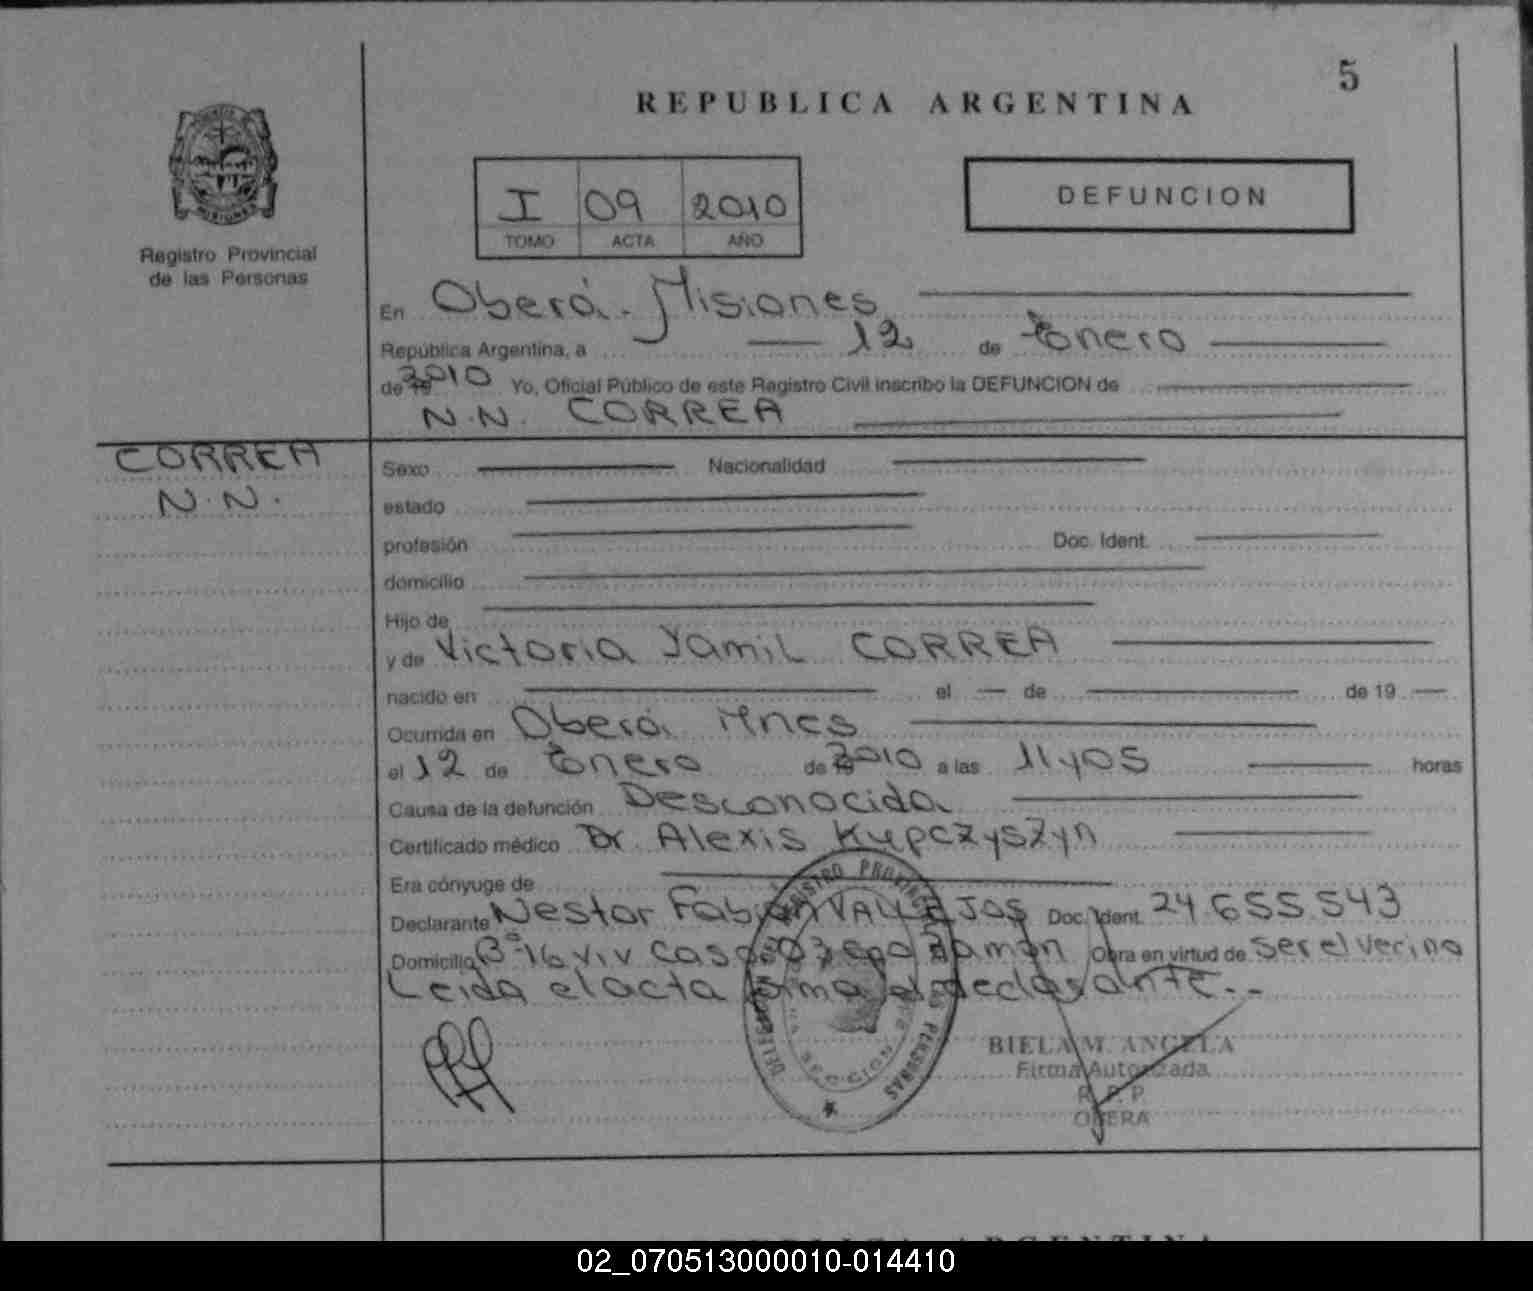 5
REPUBLICA ARGENTINA
MISIONES
Registro Provincial
de las Personas
I 09 2010
TOMO ACTA AÑO
DEFUNCION
En Oberá. Misiones
República Argentina, a 12 de Enero
de 2010 Yo, Oficial Público de este Registro Civil inscribo la DEFUNCION de
N.N. CORREA
CORREA
N.N.
Sexo Nacionalidad
estado
profesión Doc. Ident.
domicilio
Hijo de
y de Victoria Yamil CORREA
nacido en el de de 19
Ocurrida en Oberá Mnes
el 12 de Enero de 2010 a las 11 y 05 horas
Causa de la defunción Desconocida
Certificado médico Dr. Alexis Kupczyszyn
Era cónyuge de
Declarante Nestor Fabian VALLEJOS Doc. Ident. 24 655 543
Domicilio Bº 16 viv casa Ramón Obra en virtud de ser el vecino
Leida el acta firma el declarante..
BIELA M. ANGELA
Firma Autorizada
R. P. P.
OBERA
REPUBLICA ARGENTINA
02_070513000010-014410